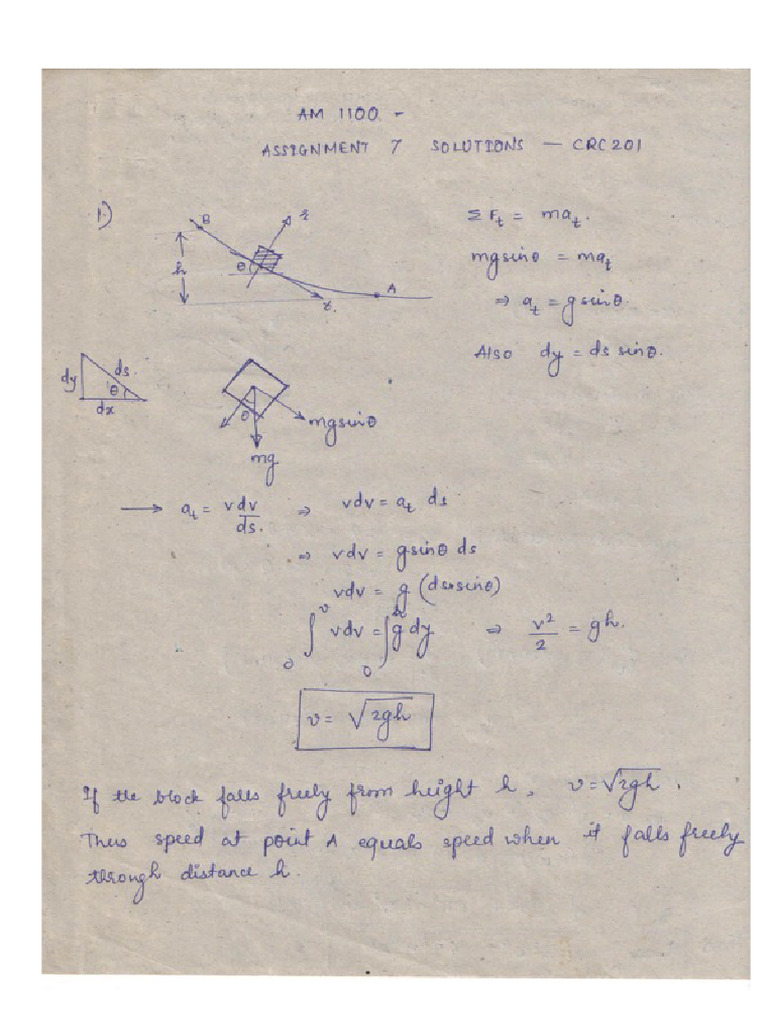 AM 1100 -
ASSIGNMENT 7 SOLUTIONS — CRC 201
1)
B
h
θ
A
t.
ΣF_t = ma_t.
mg sinθ = ma_t
⇒ a_t = g sinθ.
Also dy = ds sinθ.
dy
ds.
θ
dx
θ
mg sinθ
mg
→ a_t = vdv/ds. ⇒ vdv = a_t ds
⇒ vdv = g sinθ ds
vdv = g (ds sinθ)
∫₀^v vdv = ∫₀^h g dy ⇒ v²/2 = gh.
v = √2gh
If the block falls freely from height h, v = √2gh.
Thus speed at point A equals speed when it falls freely
through distance h.